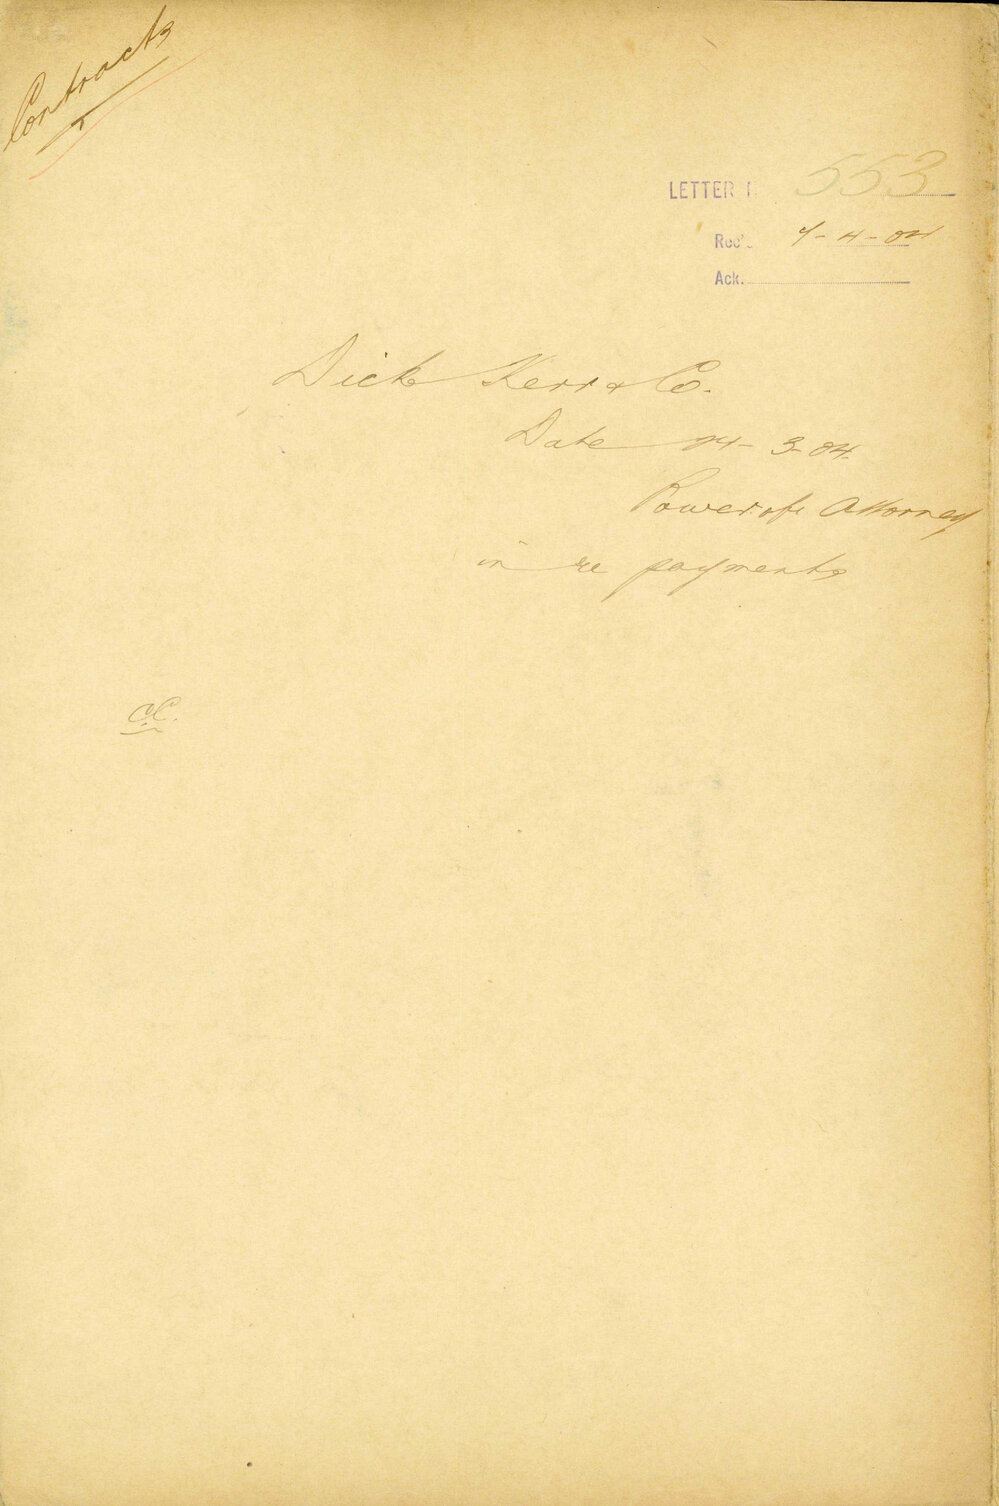 Contracts
LETTER 553
Rec'd. 7-4-04
Ack.
Dick Kerr & Co.
Date 24-3-04.
Power of Attorney
in re payments
C.C.